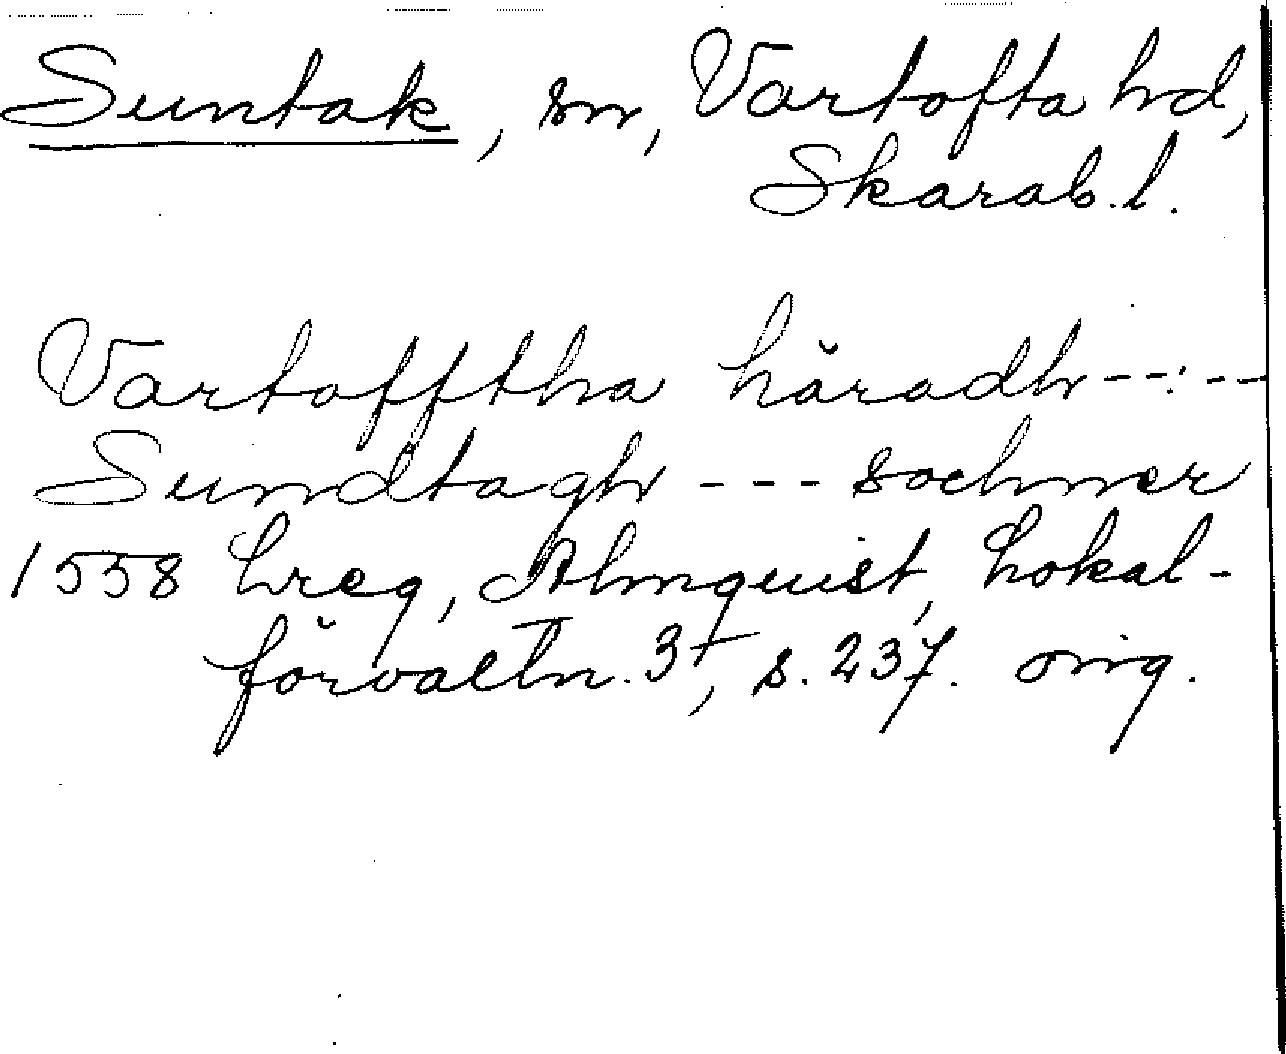 Suntak, sn, Vartofta hd,
Skarab. l.
Vartofftha häradh --:--
Sundtagh --- sochner
1558 Lreg, Almquist, Lokal-
förvaltn. 3, s. 237. orig.